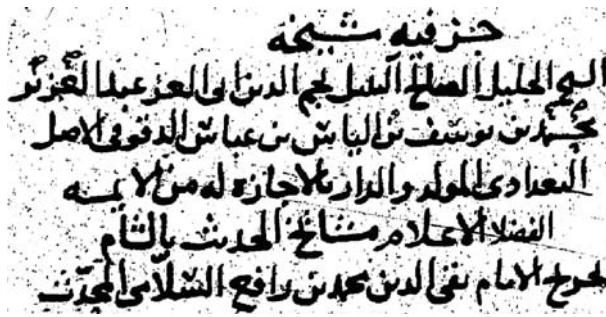 جزء فيه مشيخة
الشيخ الجليل الصالح النبيل نجم الدين ابى العز عبد العزيز
بن يوسف بن الياس بن عباس الدقوقى الاصل
البغدادى المولد والدار بالاجازة له من الايمه
الفضلا الاعلام مشايخ الحديث بالشام
تخريج الامام تقى الدين محمد بن رافع السلامى المحدث